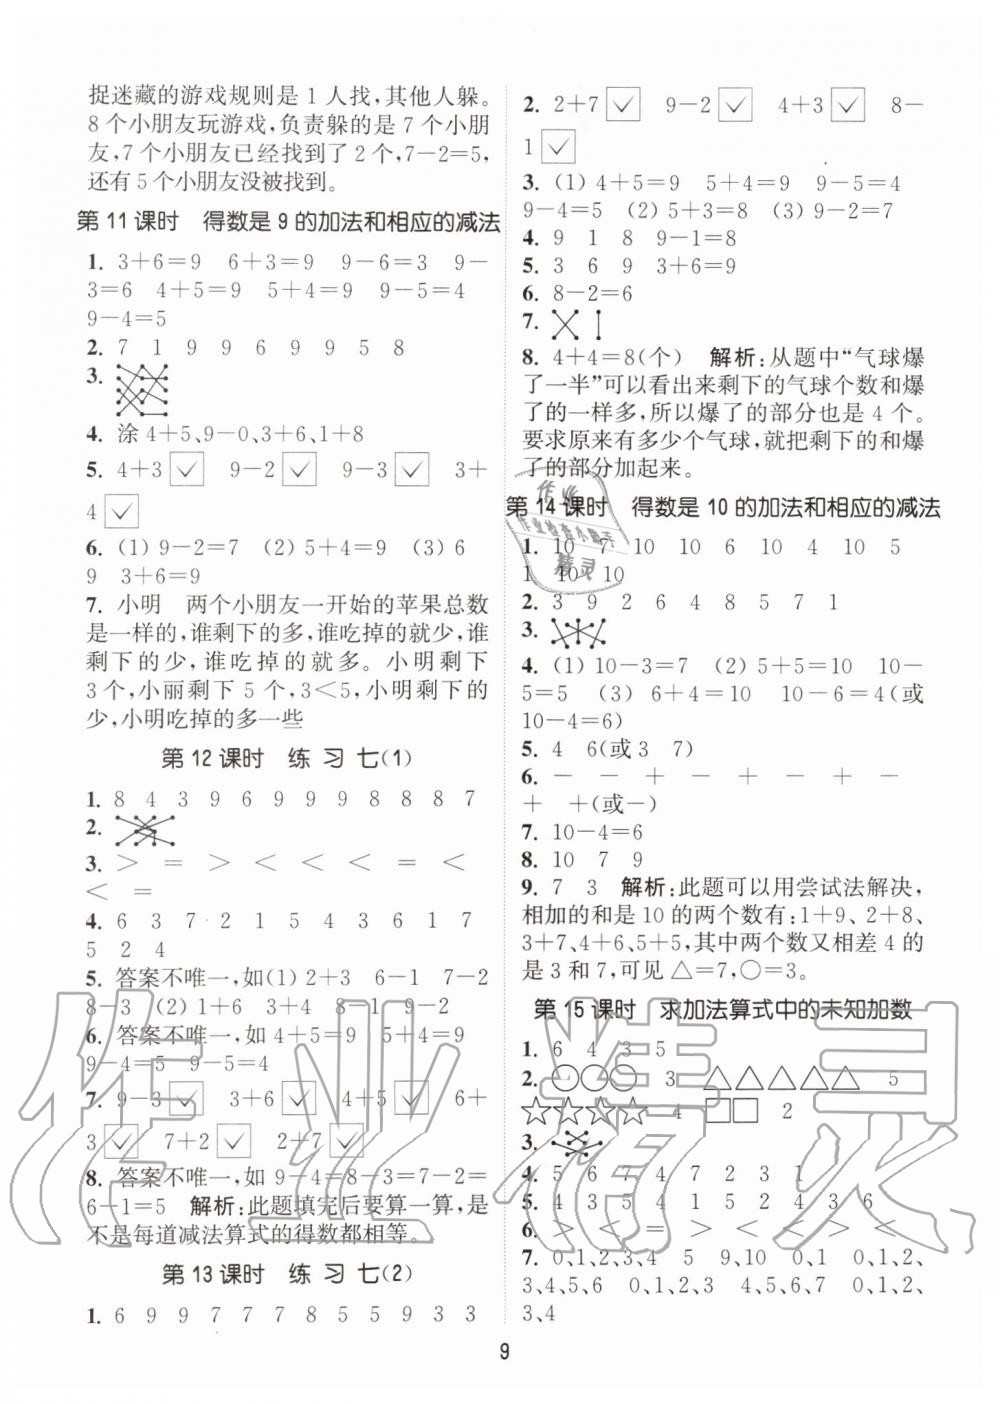 捉迷藏的游戏规则是 1 人找,其他人躲。
8 个小朋友玩游戏,负责躲的是 7 个小朋
友,7 个小朋友已经找到了 2 个,7-2=5,
还有 5 个小朋友没被找到。
第 11 课时　得数是 9 的加法和相应的减法
1. 3+6=9　6+3=9　9-6=3　9-
3=6　4+5=9　5+4=9　9-5=4
9-4=5
2. 7　1　9　9　6　9　9　5　8
3.
4. 涂 4+5、9-0、3+6、1+8
5. 4+3 ✓　9-2 ✓　9-3 ✓　3+
4 ✓
6. (1) 9-2=7　(2) 5+4=9　(3) 6
9　3+6=9
7. 小明　两个小朋友一开始的苹果总数
是一样的,谁剩下的多,谁吃掉的就少,谁
剩下的少,谁吃掉的就多。小明剩下
3个,小丽剩下 5 个,3<5,小明剩下的
少,小明吃掉的多一些
第 12 课时　练 习 七(1)
1. 8　4　3　9　6　9　9　9　8　8　8　7
2.
3. >　=　>　<　<　<　=　<
<　=
4. 6　3　7　2　1　5　4　3　6　1　7
5　2　4
5. 答案不唯一,如(1) 2+3　6-1　7-2
8-3　(2) 1+6　3+4　8-1　9-2
6. 答案不唯一,如 4+5=9　5+4=9
9-4=5　9-5=4
7. 9-3 ✓　3+6 ✓　4+5 ✓　6+
3 ✓　7+2 ✓　2+7 ✓
8. 答案不唯一,如 9-4=8-3=7-2=
6-1=5　解析:此题填完后要算一算,是
不是每道减法算式的得数都相等。
第 13 课时　练 习 七(2)
1. 6　9　9　7　7　7　8　5　5　9　3　3
2. 2+7 ✓　9-2 ✓　4+3 ✓　8-
1 ✓
3. (1) 4+5=9　5+4=9　9-5=4
9-4=5　(2) 5+3=8　(3) 9-2=7
4. 9　1　8　9-1=8
5. 3　6　9　3+6=9
6. 8-2=6
7.
8. 4+4=8(个)　解析:从题中“气球爆
了一半”可以看出来剩下的气球个数和爆
了的一样多,所以爆了的部分也是 4 个。
要求原来有多少个气球,就把剩下的和爆
了的部分加起来。
第 14 课时　得数是 10 的加法和相应的减法
1. 10　7　10　10　6　10　4　10　5
1　10　10
2. 3　9　2　6　4　8　5　7　1
3.
4. (1) 10-3=7　(2) 5+5=10　10-
5=5　(3) 6+4=10　10-6=4(或
10-4=6)
5. 4　6(或 3　7)
6. -　-　+　-　+　-　-
+　+(或-)
7. 10-4=6
8. 10　7　9
9. 7　3　解析:此题可以用尝试法解决,
相加的和是 10 的两个数有:1+9、2+8、
3+7、4+6、5+5,其中两个数又相差 4 的
是 3 和 7,可见 △=7,○=3。
第 15 课时　求加法算式中的未知加数
1. 6　4　3　5
2. ○○○　3　△△△△△　5
☆☆☆☆　4　□□　2
3.
4. 5　6　7　4　7　2　3　1
5. 4　3　5　4　1　5　2　4　3　6
6. >　<　<　=　>　<　>　<
7. 0、1、2、3、4　5　9、10　0、1、2、
3、4、5、6　0、1、2、3　0、1、2、
3、4
9
作业精灵
作业
作业检查小助手
精灵